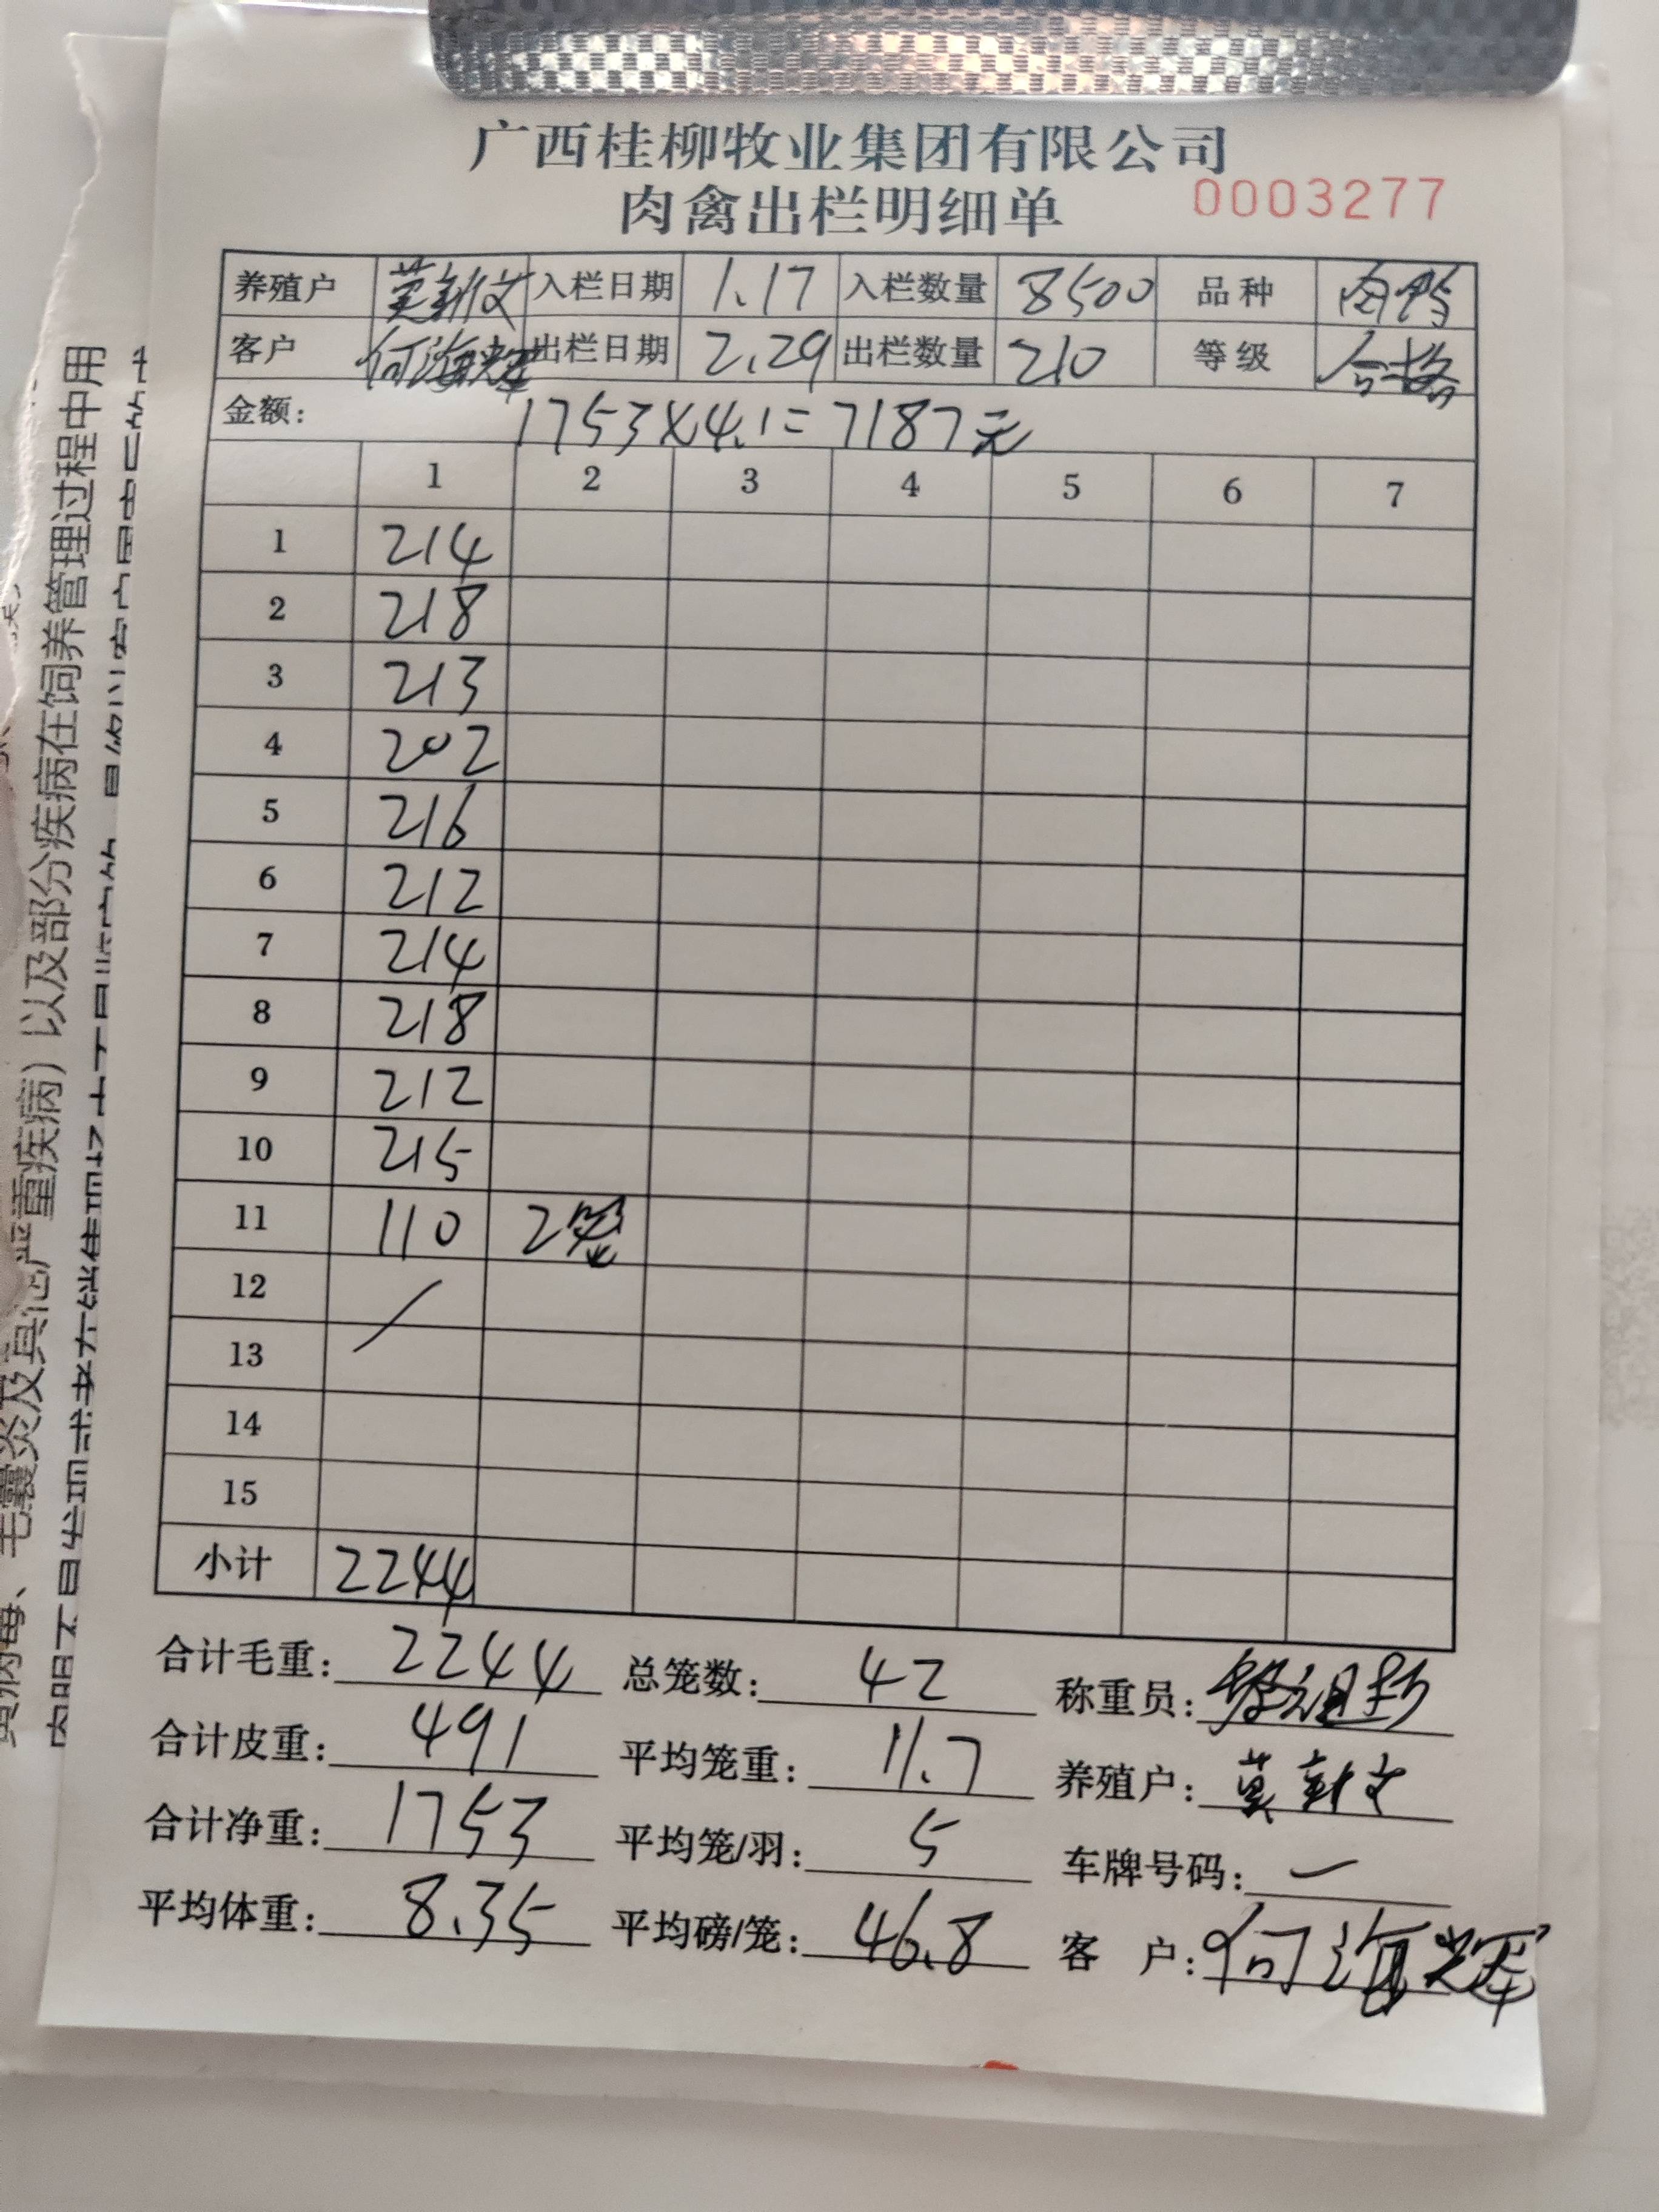 广西桂柳牧业集团有限公司
肉禽出栏明细单 0003277
养殖户 莫新文 入栏日期 1.17 入栏数量 8500 品种 肉鸭
客户 何海辉 出栏日期 2.29 出栏数量 210 等级 合格
金额: 1753×4.1=7187元
1 2 3 4 5 6 7
1 214
2 218
3 213
4 202
5 216
6 212
7 214
8 218
9 212
10 215
11 110 2笼
12
13
14
15
小计 2244
合计毛重: 2244 总笼数: 42 称重员:
合计皮重: 491 平均笼重: 11.7 养殖户: 莫新文
合计净重: 1753 平均笼/羽: 5 车牌号码: 一
平均体重: 8.35 平均磅/笼: 46.8 客 户: 何海辉
严重疾病）以及部分疾病在饲养管理过程中用